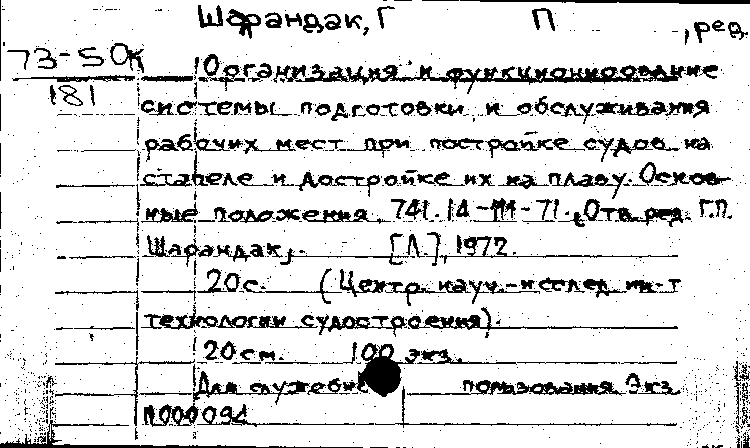 Шарандак, Г П , ред.
73-5 ОК
181
Организация и функционирование
системы подготовки и обслуживания
рабочих мест при постройке судов на
стапеле и достройке их на плаву. Основ-
ные положения. 741.14-111-71. Отв. ред. Г.П.
Шарандак. [Л.], 1972.
20 с. (Центр. науч.-исслед. ин-т
технологии судостроения).
20 см. 100 экз.
Для пользования. Экз.